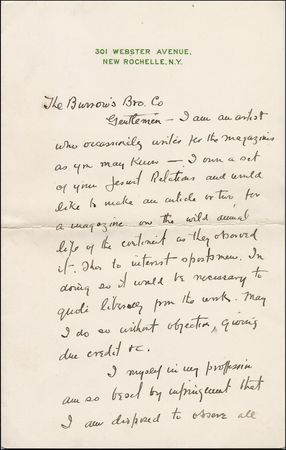 301 WEBSTER AVENUE,
NEW ROCHELLE, N.Y.
The Burrow's Bro. Co
Gentlemen — I am an artist
who occasionally writes for the magazines
as you may know — I own a set
of your Jesuit Relations and would
like to make an article or two, for
a magazine on the wild animal
life of the continent as they observed
it. Thos to interest sportsmen. In
doing so it would be necessary to
quote liberally from the work. May
I do so without objection, giving
due credit &c.
I myself in my profession
am so beset by infringement that
I am disposed to observe all